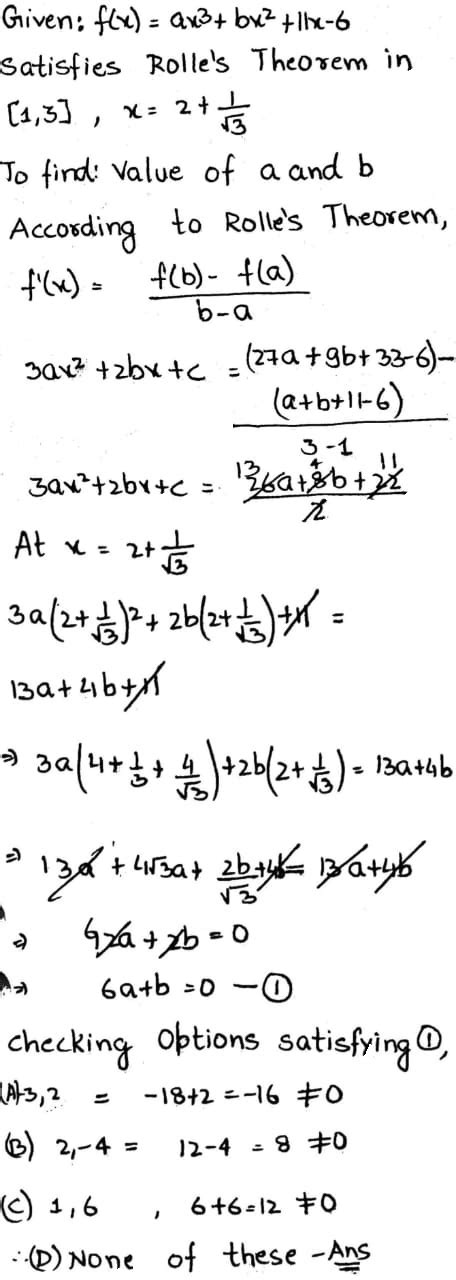 Given: f(x) = ax3 + bx² + 11x - 6
Satisfies Rolle's Theorem in
[1,3] , x = 2 + 1/√3
To find: Value of a and b
According to Rolle's Theorem,
f'(x) = f(b) - f(a) / b-a
3ax² + 2bx + c = (27a + 9b + 33-6) - (a+b+11-6) / 3-1
3ax² + 2bx + c = 13 26a + 4 8b + 11 22 / 2
At x = 2 + 1/√3
3a(2 + 1/√3)² + 2b(2 + 1/√3) + 11 =
13a + 4b + 11
⇒ 3a(4 + 1/3 + 4/√3) + 2b(2 + 1/√3) = 13a + 4b
⇒ 13a + 4√3a + 2b/√3 + 4b = 13a + 4b
⇒ a + 2b = 0
⇒ 6a + b = 0 — ①
checking Options satisfying ①,
(A) -3,2 = -18+2 = -16 ≠ 0
(B) 2,-4 = 12-4 = 8 ≠ 0
(C) 1,6 , 6+6 = 12 ≠ 0
∴ (D) None of these - Ans